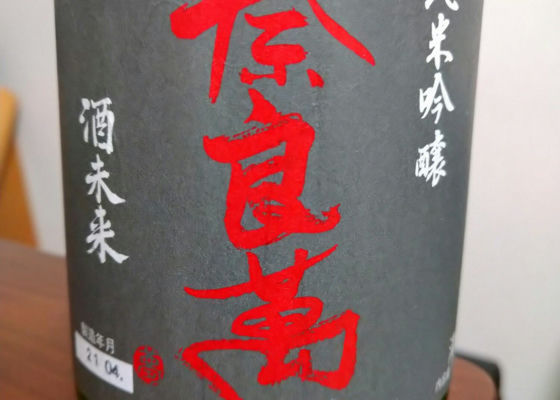 米吟醸
奈良萬
酒未来
製造年月
21 04.